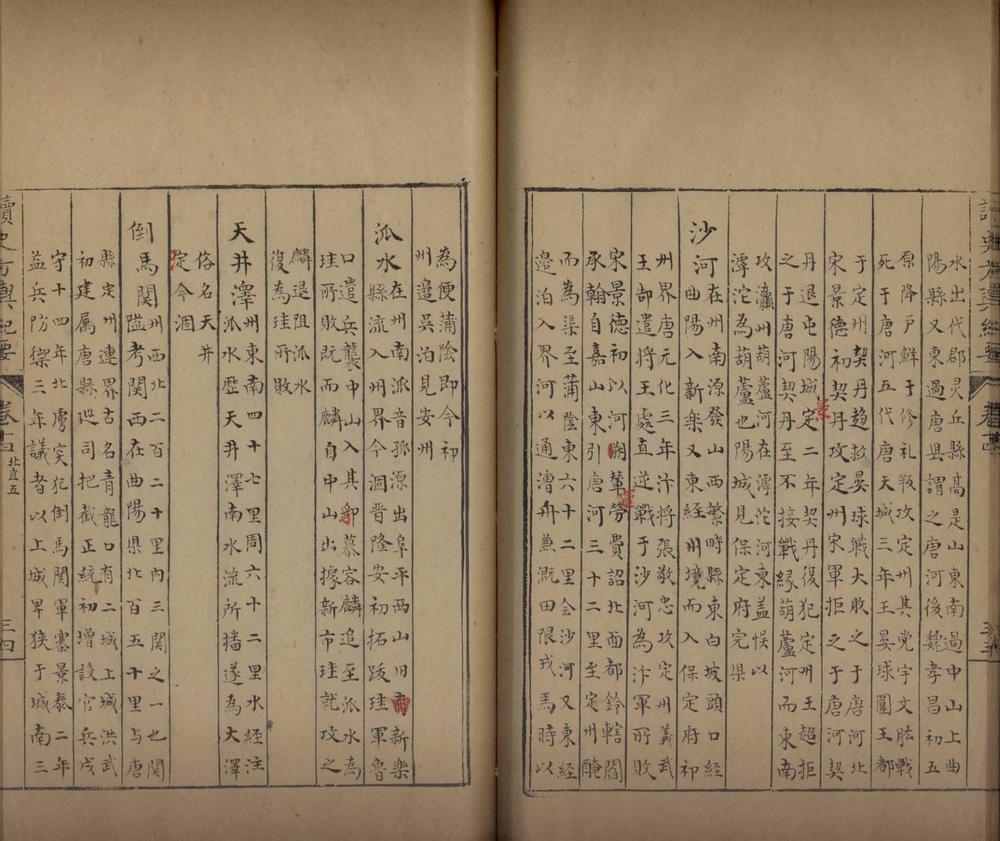 讀史方輿紀要
水出代郡灵丘縣髙是山東南過中山上曲
陽縣又東過唐县謂之唐河後魏孝昌初五
原降戸鮮于修礼叛攻定州其党宇文肱戰
死于唐河五代唐天城三年王晏球圍王都
于定州契丹趋救晏球戰大敗之于唐河北
宋景德初契丹攻定州宋軍拒之于唐河契
丹退屯陽城定二年契丹復犯定州王超拒
之于唐河契丹至不接戰縁葫蘆河而東南
攻瀛州葫蘆河在滹沱河東盖悮以
滹沱為葫蘆也陽城見保定府完県
沙河在州南源發山西繁時縣東白坡頭口経
曲陽入新楽又東経州境而入保定府祁
州界唐元化三年汴將張敬忠攻定州義武
王郜遣將王處直逆戰于沙河為汴軍所敗
宋景德初以河朔輦労費詔北面都鈐轄閻
承翰自嘉山東引唐河三十二里至定州醃
而為渠至蒲陰東六十二里会沙河又東経
邉泊入界河以通漕舟兼溉田限戎馬時以
為便蒲陰即今初
州邉吳泊見安州
泒水在州南派音孤源出阜平西山旧新樂
縣流入州界今涸晋隆安初拓跋珪軍魯
口遣兵襲中山入其郛慕容麟追至派水為
珪所敗既而麟自中山出據新市珪就攻之
麟退阻派水
復為珪所敗
天井澤州東南四十七里周六十二里水経注
泒水歷天井澤南水流所播遂為大澤
俗名天井
定今涸
倒馬関州西北二百二十里內三関之一也関
隘考関西在曲陽県北百五十里与唐
縣定州連界古名青龍口有二城上城洪武
初建属唐縣廵司把截正統初增設官兵戍
守十四年北虜突犯倒馬関軍寨景泰二年
益兵防禦三年議者以上城卑狭于城南三
讀史方輿紀要
卷十四
北直五
三四